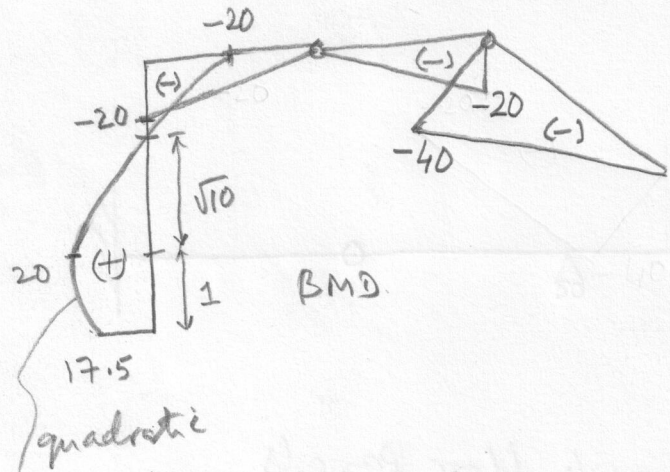 -20
(-)
(-)
-20
-20
(-)
-40
√10
20
(+)
1
BMD.
17.5
quadratic